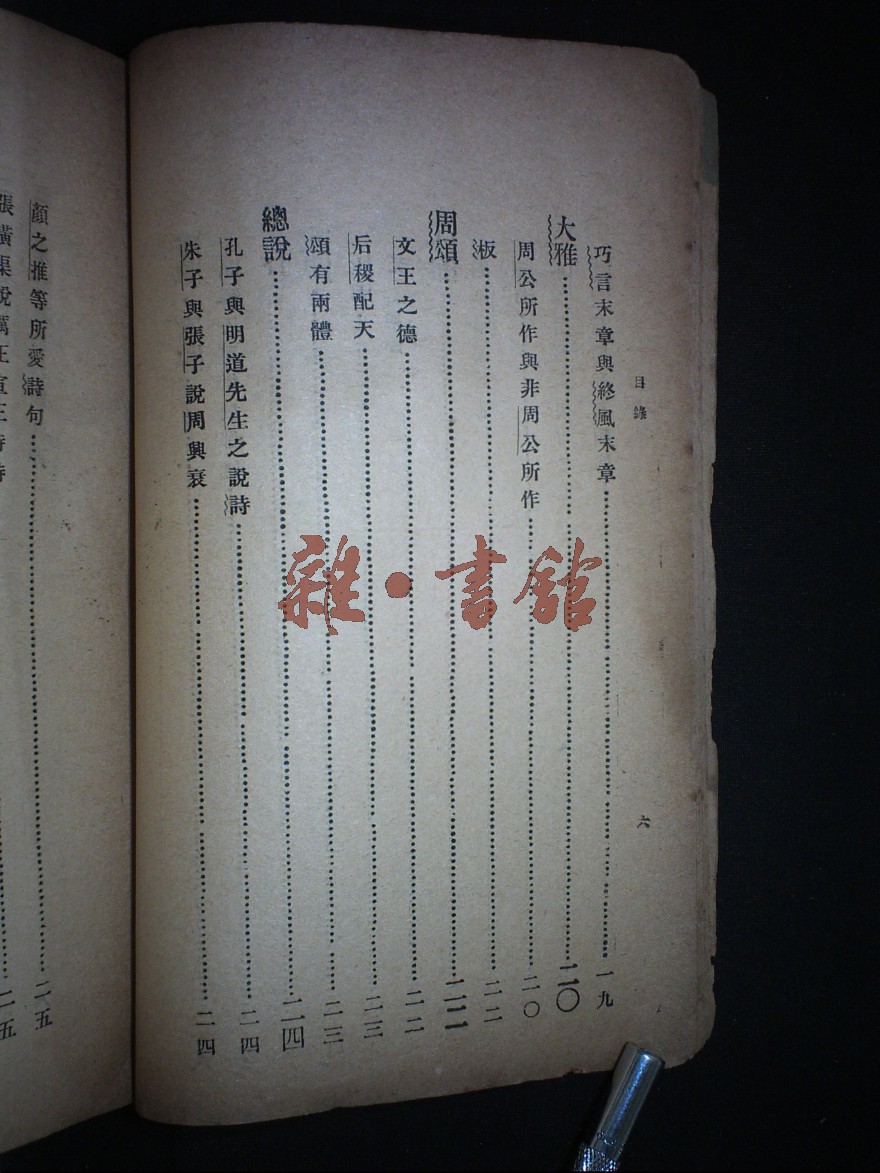 目錄
六
巧言末章與終風末章……一九
大雅……二〇
周公所作與非周公所作……二〇
板……二二
周頌……二二
文王之德……二二
后稷配天……二三
頌有兩體……二三
總說……二四
孔子與明道先生之說詩……二四
朱子與張子說周興衰……二四
顏之推等所愛詩句……二五
張橫渠說厲王宣王時詩……二五
雜·書館